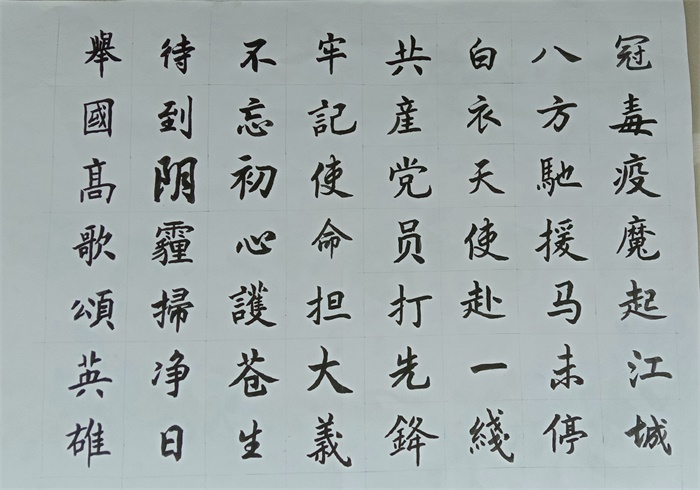 冠毒疫魔起江城
八方馳援马未停
白衣天使赴一綫
共産党员打先鋒
牢記使命担大義
不忘初心護苍生
待到阴霾掃净日
舉國高歌頌英雄